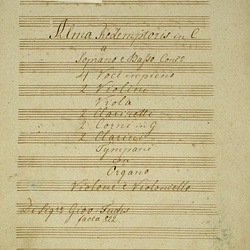 Alma Redemptoris in C
a
Soprano e Basso Conc:
4 Voci in pieno
2 Violini
Viola
2 Clarinetti
2 Corni in G
2 Clarini
Tympani
con
Organo
Violone e Violoncello
Del Sigre Giov: